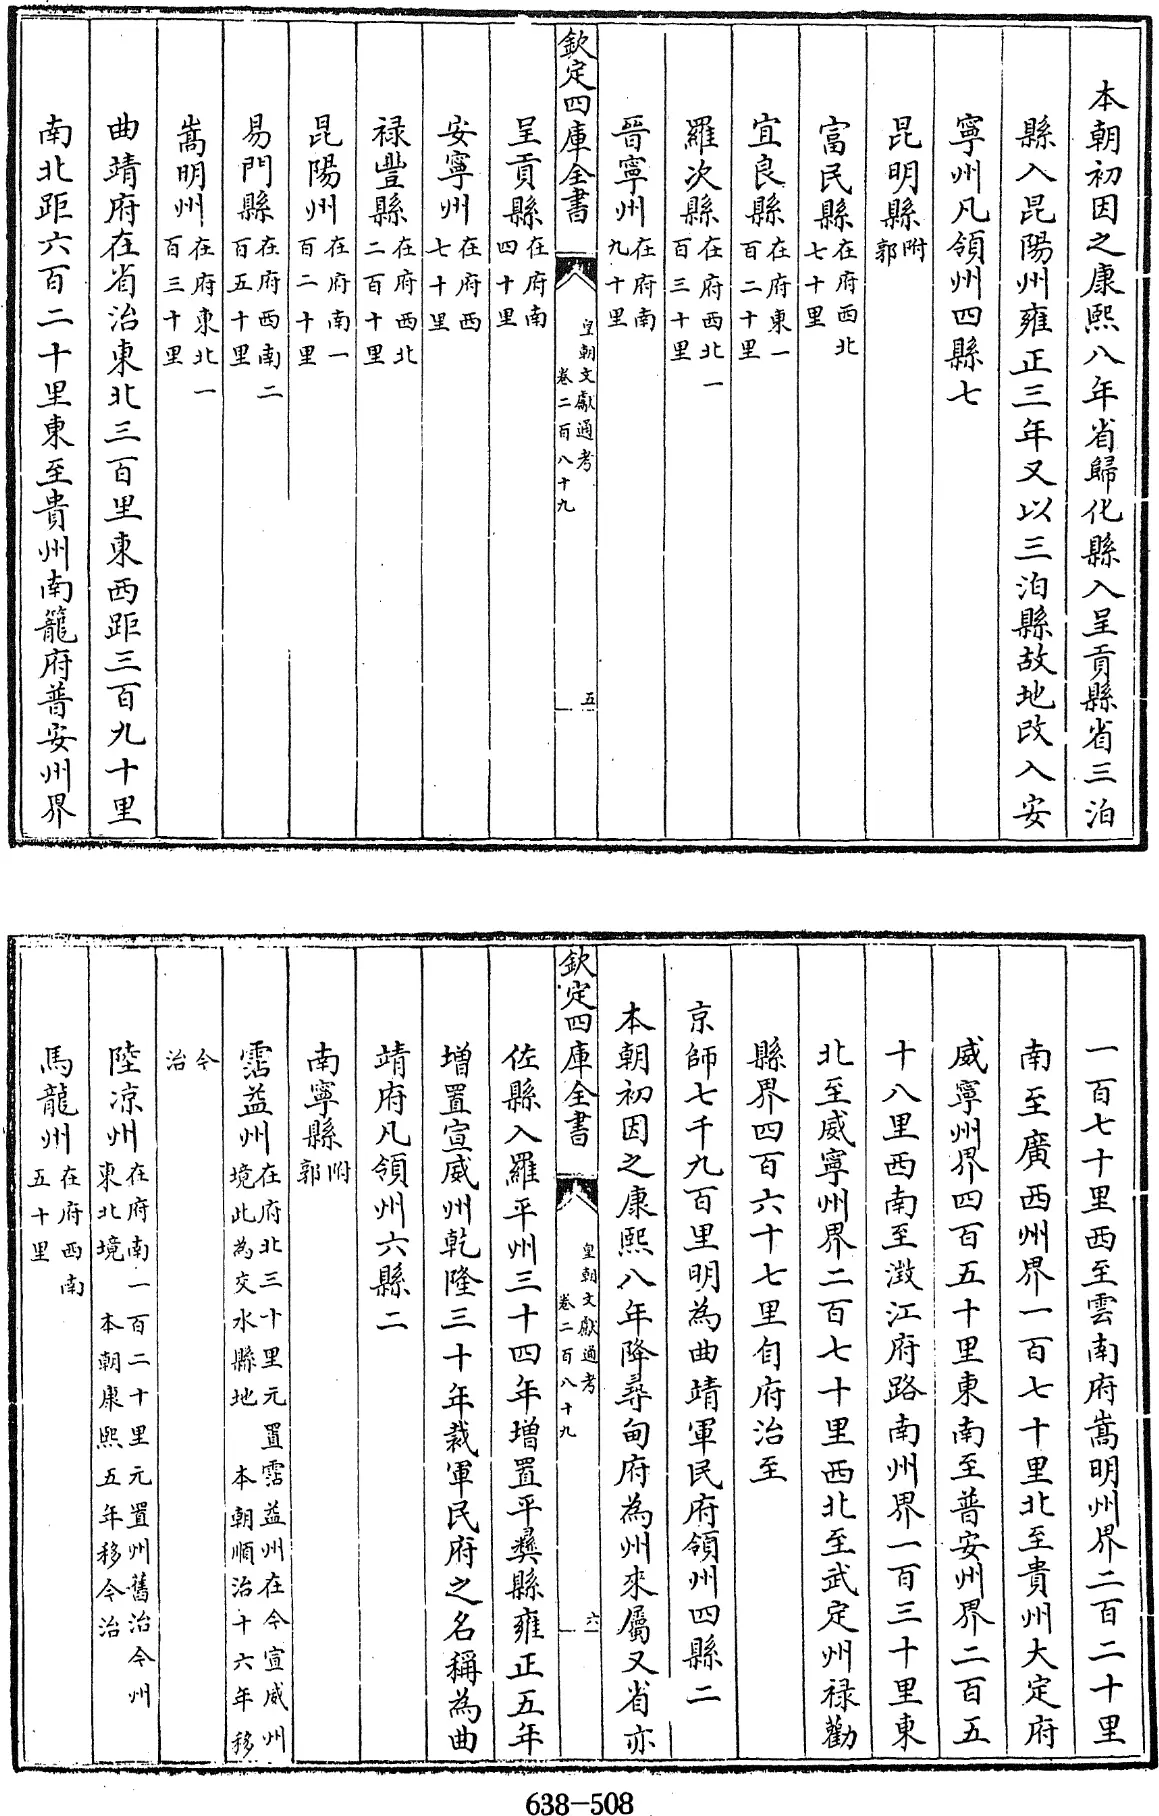 本朝初因之康熙八年省歸化縣入呈貢縣省三泊
縣入昆陽州雍正三年又以三泊縣故地改入安
寧州凡領州四縣七
昆明縣附郭
富民縣在府西北七十里
宜良縣在府東一百二十里
羅次縣在府西北一百三十里
晉寧州在府南九十里
欽定四庫全書
皇朝文獻通考
卷二百八十九
五
呈貢縣在府南四十里
安寧州在府西七十里
禄豐縣在府西北二百十里
昆陽州在府南一百二十里
易門縣在府西南二百五十里
嵩明州在府東北一百三十里
曲靖府在省治東北三百里東西距三百九十里
南北距六百二十里東至貴州南籠府普安州界
一百七十里西至雲南府嵩明州界二百二十里
南至廣西州界一百七十里北至貴州大定府
威寧州界四百五十里東南至普安州界二百五
十八里西南至澂江府路南州界一百三十里東
北至威寧州界二百七十里西北至武定州禄勸
縣界四百六十七里自府治至
京師七千九百里明為曲靖軍民府領州四縣二
本朝初因之康熙八年降尋甸府為州來屬又省亦
欽定四庫全書
皇朝文獻通考
卷二百八十九
六
佐縣入羅平州三十四年增置平彝縣雍正五年
增置宣威州乾隆三十年裁軍民府之名稱為曲
靖府凡領州六縣二
南寧縣附郭
霑益州在府北三十里元置霑益州在今宣威州境此為交水縣地 本朝順治十六年移
今治
陸凉州在府南一百二十里元置州舊治今州東北境 本朝康熙五年移今治
馬龍州在府西南五十里
638-508